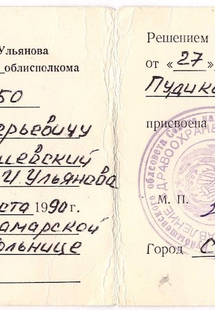 Ульянова
облисполкома
50
рьевичу
шевский
И. Ульянова
ста 1990г.
амарской
ольнице
Решением
от «27»
Пудик
присвоена
М. П.
Город С